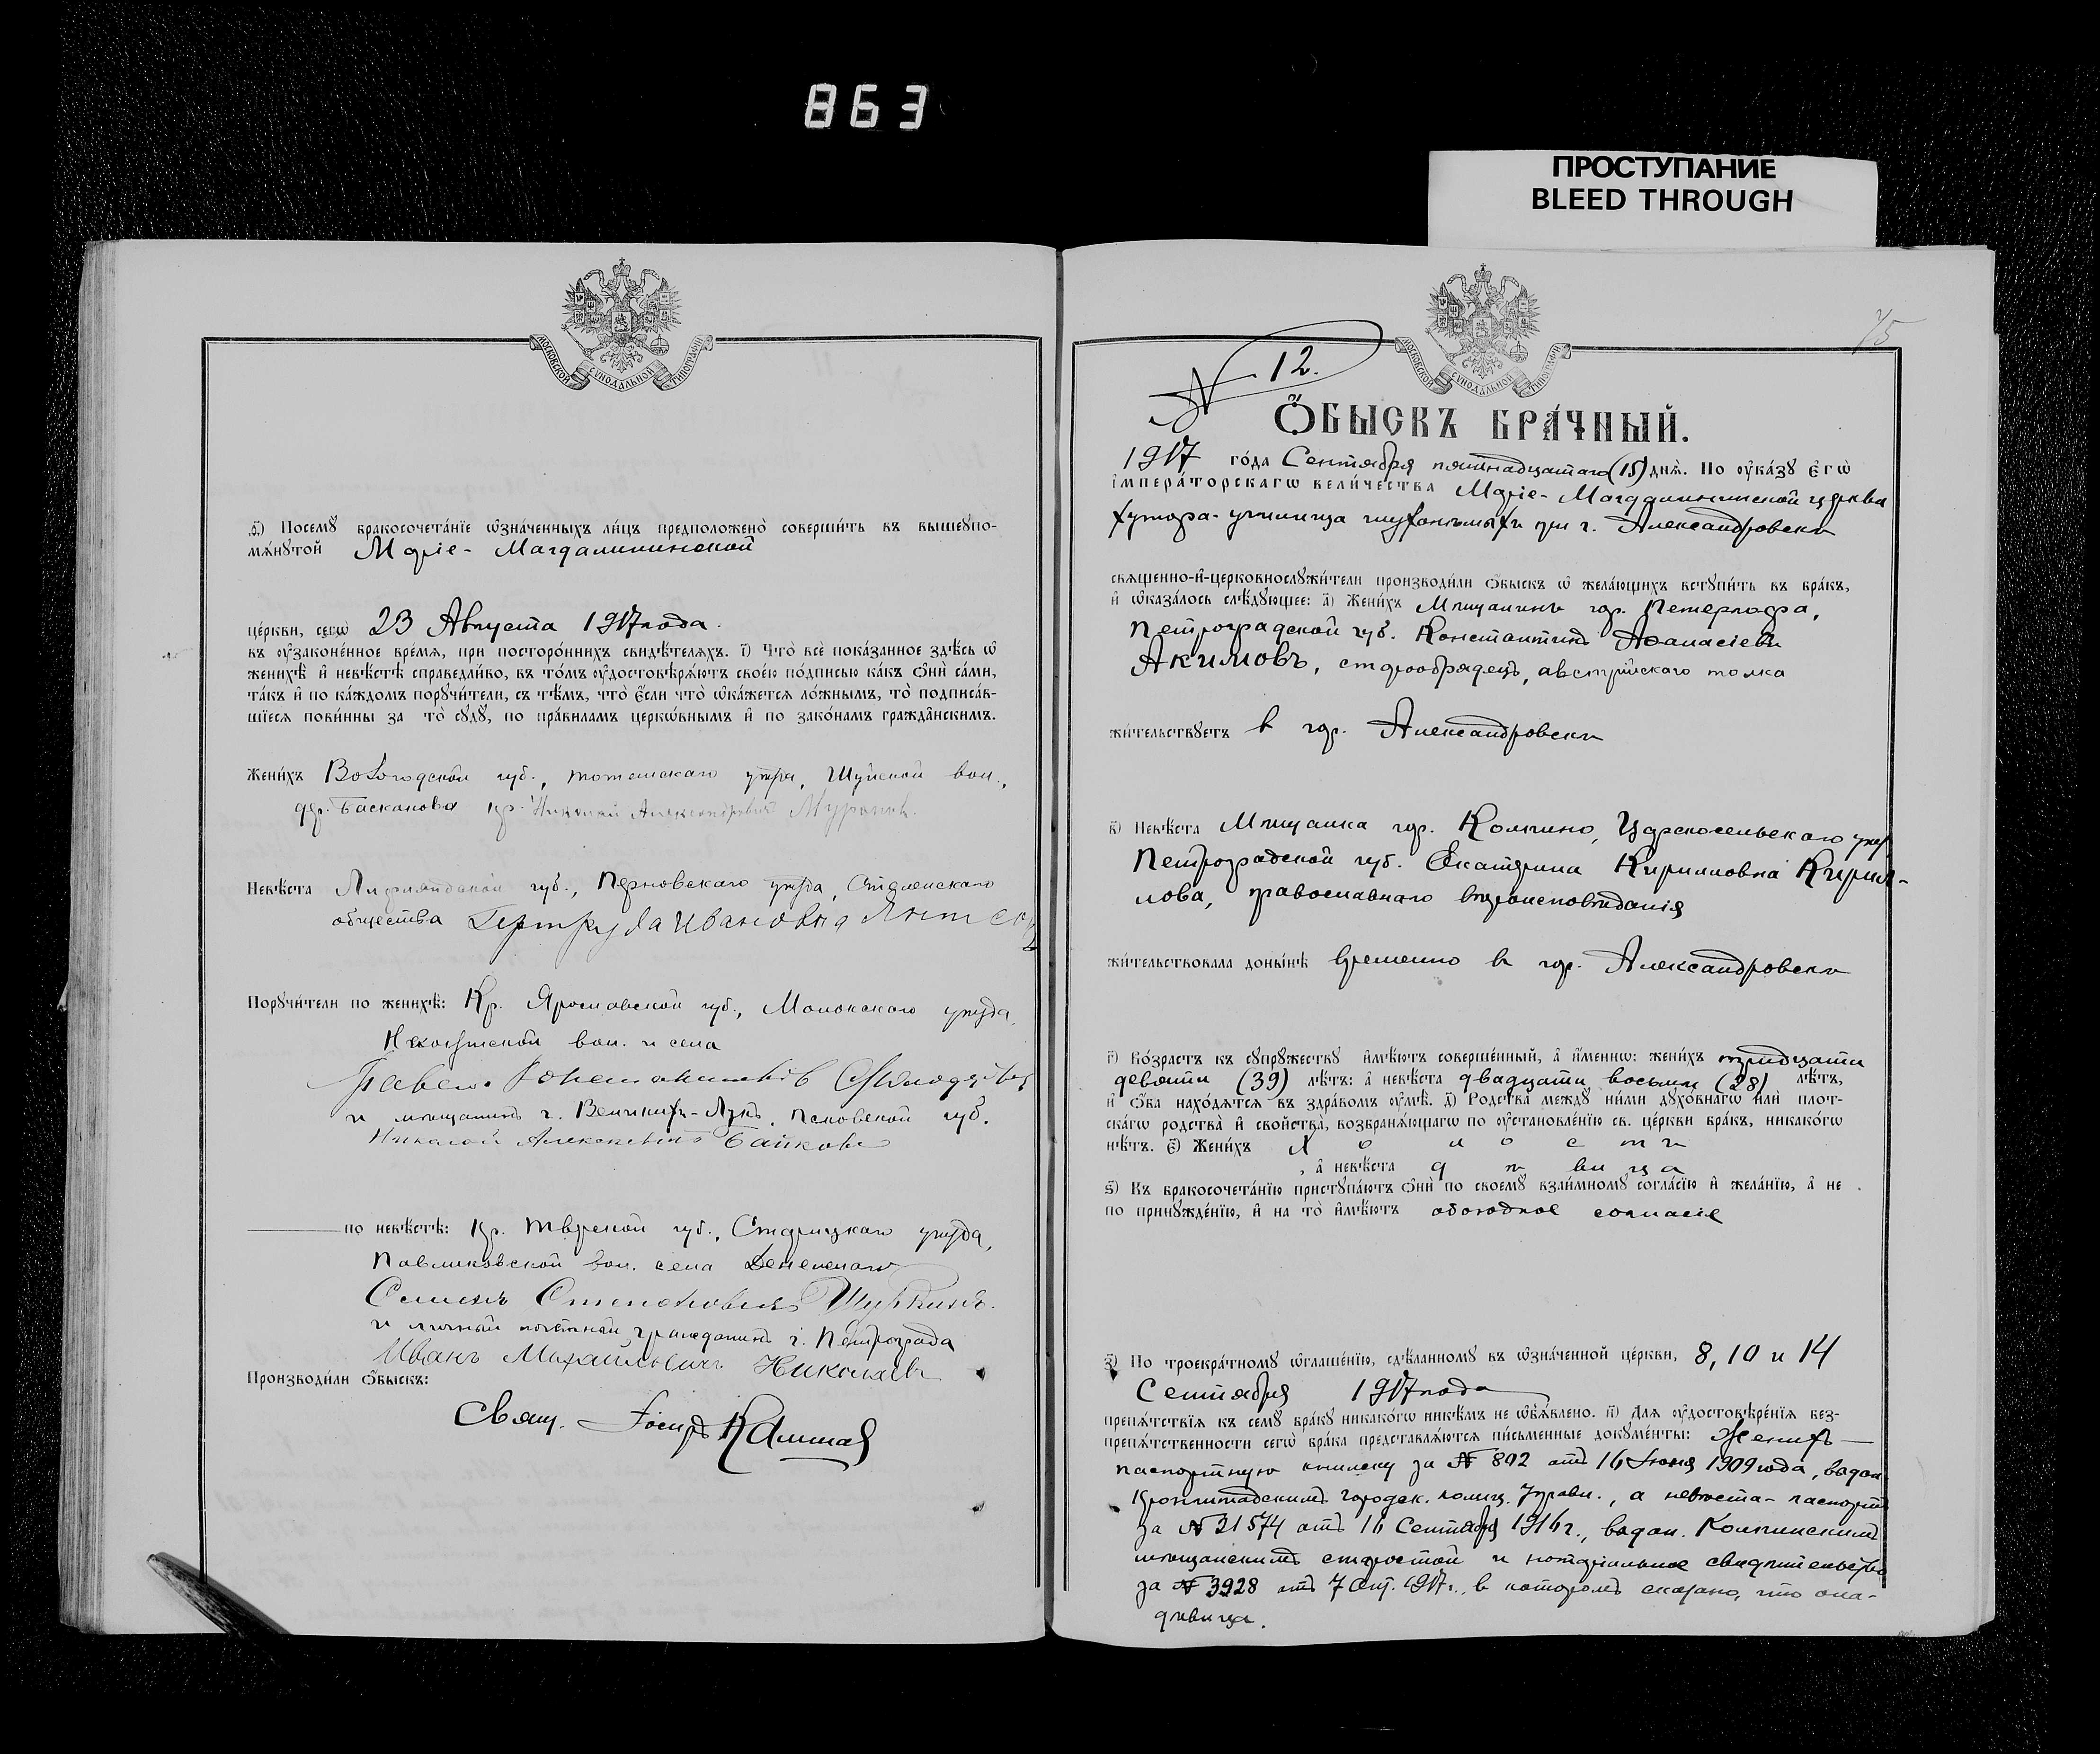 863
ПРОСТУПАНИЕ
BLEED THROUGH
МОСКОВСКОЙ СѴНОДАЛЬНОЙ ТИПОГРАФІИ
ѳ҃) Посемꙋ̀ бракосочета́нїе ѡ҆зна́ченныхъ ли́цъ предположено̀ соверши́ть въ вышеꙋпо-
мѧ́нꙋтой Маріе-Магдалининской
це́ркви, сегѡ̀ 23 Августа 1917 года.
въ ᲂу҆зако́ненное вре́мѧ, при посторо́ннихъ свидѣ́телѧхъ. і҃) Что̀ всѐ пока́занное здѣ́сь ѡ҆
женихѣ̀ и҆ невѣ́стѣ справедли́во, въ то́мъ ᲂу҆достовѣрѧ́ютъ свое́ю по́дписью ка́къ ѻ҆нѝ са́ми,
та́къ и҆ по ка́ждомъ порꙋчи́тели, съ тѣ́мъ, что̀ є҆́сли что̀ ѡ҆ка́жетсѧ ло́жнымъ, то̀ подписа́в-
шїесѧ пови́нны за то̀ сꙋдꙋ̀, по пра́виламъ церкѡ́внымъ и҆ по зако́намъ гражда̑нскимъ.
Жени́хъ Вологодской губ., тотемскаго уѣзда, Шуйской вол.,
дер. Басканова кр. Николай Александровичъ
Невѣ́ста Лифляндской губ., Перновскаго уѣзда,
общества Гертруда Ивановна
Порꙋчи́тели по женихѣ̀: Кр. Ярославской губ., Мологскаго уѣзда,
вол. и села
Павелъ
и мѣщанинъ г. Великихъ-Лукъ, Псковской губ.
Николай Алексѣевичъ Байковъ
по невѣ́стѣ: Кр. Тверской губ., Старицкаго уѣзда,
Павликовской вол. села
Семенъ Степановичъ
и личный почетный гражданинъ г. Петрограда
Иванъ Михайловичъ Николаевъ
Производи́ли ѻ҆́быскъ:
Свящ. Іосифъ
75
МОСКОВСКОЙ СѴНОДАЛЬНОЙ ТИПОГРАФІИ
№ 12.
Ѻ҆́БЫСКЪ БРА́ЧНЫЙ.
1917 го́да Сентября пятнадцатаго (15) днѧ̀. По ᲂу҆ка́зꙋ Є҆гѡ̀
І҆мпера́торскагѡ Вели́чества Маріе-Магдалининской церкви
хутора-училища глухонѣмыхъ при г. Александровскѣ
свѧще́нно-и҆-церковнослꙋжи́тели производи́ли ѻ҆́быскъ ѡ҆ жела́ющихъ встꙋпи́ть въ бра́къ,
и҆ ѡ҆каза́лось слѣ́дꙋющее: а҃) Жени́хъ Мѣщанинъ гор. Петергофа,
Петроградской губ. Константинъ Аѳанасіевъ
Акимовъ, старообрядецъ, австрійскаго толка
жи́тельствꙋетъ в гор. Александровскѣ
в҃) Невѣ́ста Мѣщанка гор. Колпино, Царскосельскаго уѣз.
Петроградской губ. Екатерина Кирилловна Кирил-
лова, православнаго вѣроисповѣданія
жи́тельствовала доны́нѣ временно въ гор. Александровскѣ
г҃) Во́зрастъ къ сꙋпрꙋ́жествꙋ и҆мѣ́ютъ соверше́нный, а҆ и҆́меннѡ: жени́хъ тридцати
девяти (39) лѣ́тъ: а҆ невѣ́ста двадцати восьми (28) лѣ́тъ,
и҆ ѻ҆́ба нахо́дѧтсѧ въ здра́вомъ ᲂу҆мѣ̀. д҃) Родства̀ междꙋ̀ ни́ми дꙋхо́внагѡ и҆лѝ пло́т-
скагѡ родства̀ и҆ сво́йства̀, возбранѧ́ющагѡ по ᲂу҆становле́нїю св. це́ркви бра́къ, никако́гѡ
нѣ́тъ. є҃) Жени́хъ х о л о с т ъ
, а҆ невѣ́ста д ѣ ви ц а
ѕ҃) Къ бракосочета́нїю пристꙋпа́ютъ ѻ҆нѝ по своемꙋ̀ взаи́мномꙋ согла́сїю и҆ жела́нїю, а҆ не
по принꙋжде́нїю, и҆ на то̀ и҆мѣ́ютъ обоюдное согласіе
з҃) По троекра́тномꙋ ѡ҆глаше́нїю, сдѣ́ланномꙋ въ ѡ҆зна́ченной це́ркви, 8, 10 и 14
Сентября 1917 года
препѧ́тствїѧ къ семꙋ̀ бра́кꙋ никако́гѡ никѣ́мъ не ѡ҆б̾ѧ́влено. и҃) Длѧ ᲂу҆достовѣре́нїѧ без-
препѧ́тственности сегѡ̀ бра́ка представлѧ́ютсѧ пи́сьменные докꙋме́нты: Женихъ —
паспортную книжку за № 892 отъ 16 Іюня 1909 года, выдан.
Кронштадскимъ городск. полиц. Управл., а невѣста - паспортъ
за № 21574 отъ 16 Сентября 1916 г., выдан. Колпинскимъ
мѣщанскимъ старостой и нотаріальное свидѣтельство
за № 3928 отъ 7 Сент. 1917 г., в которомъ сказано, что она -
дѣвица.